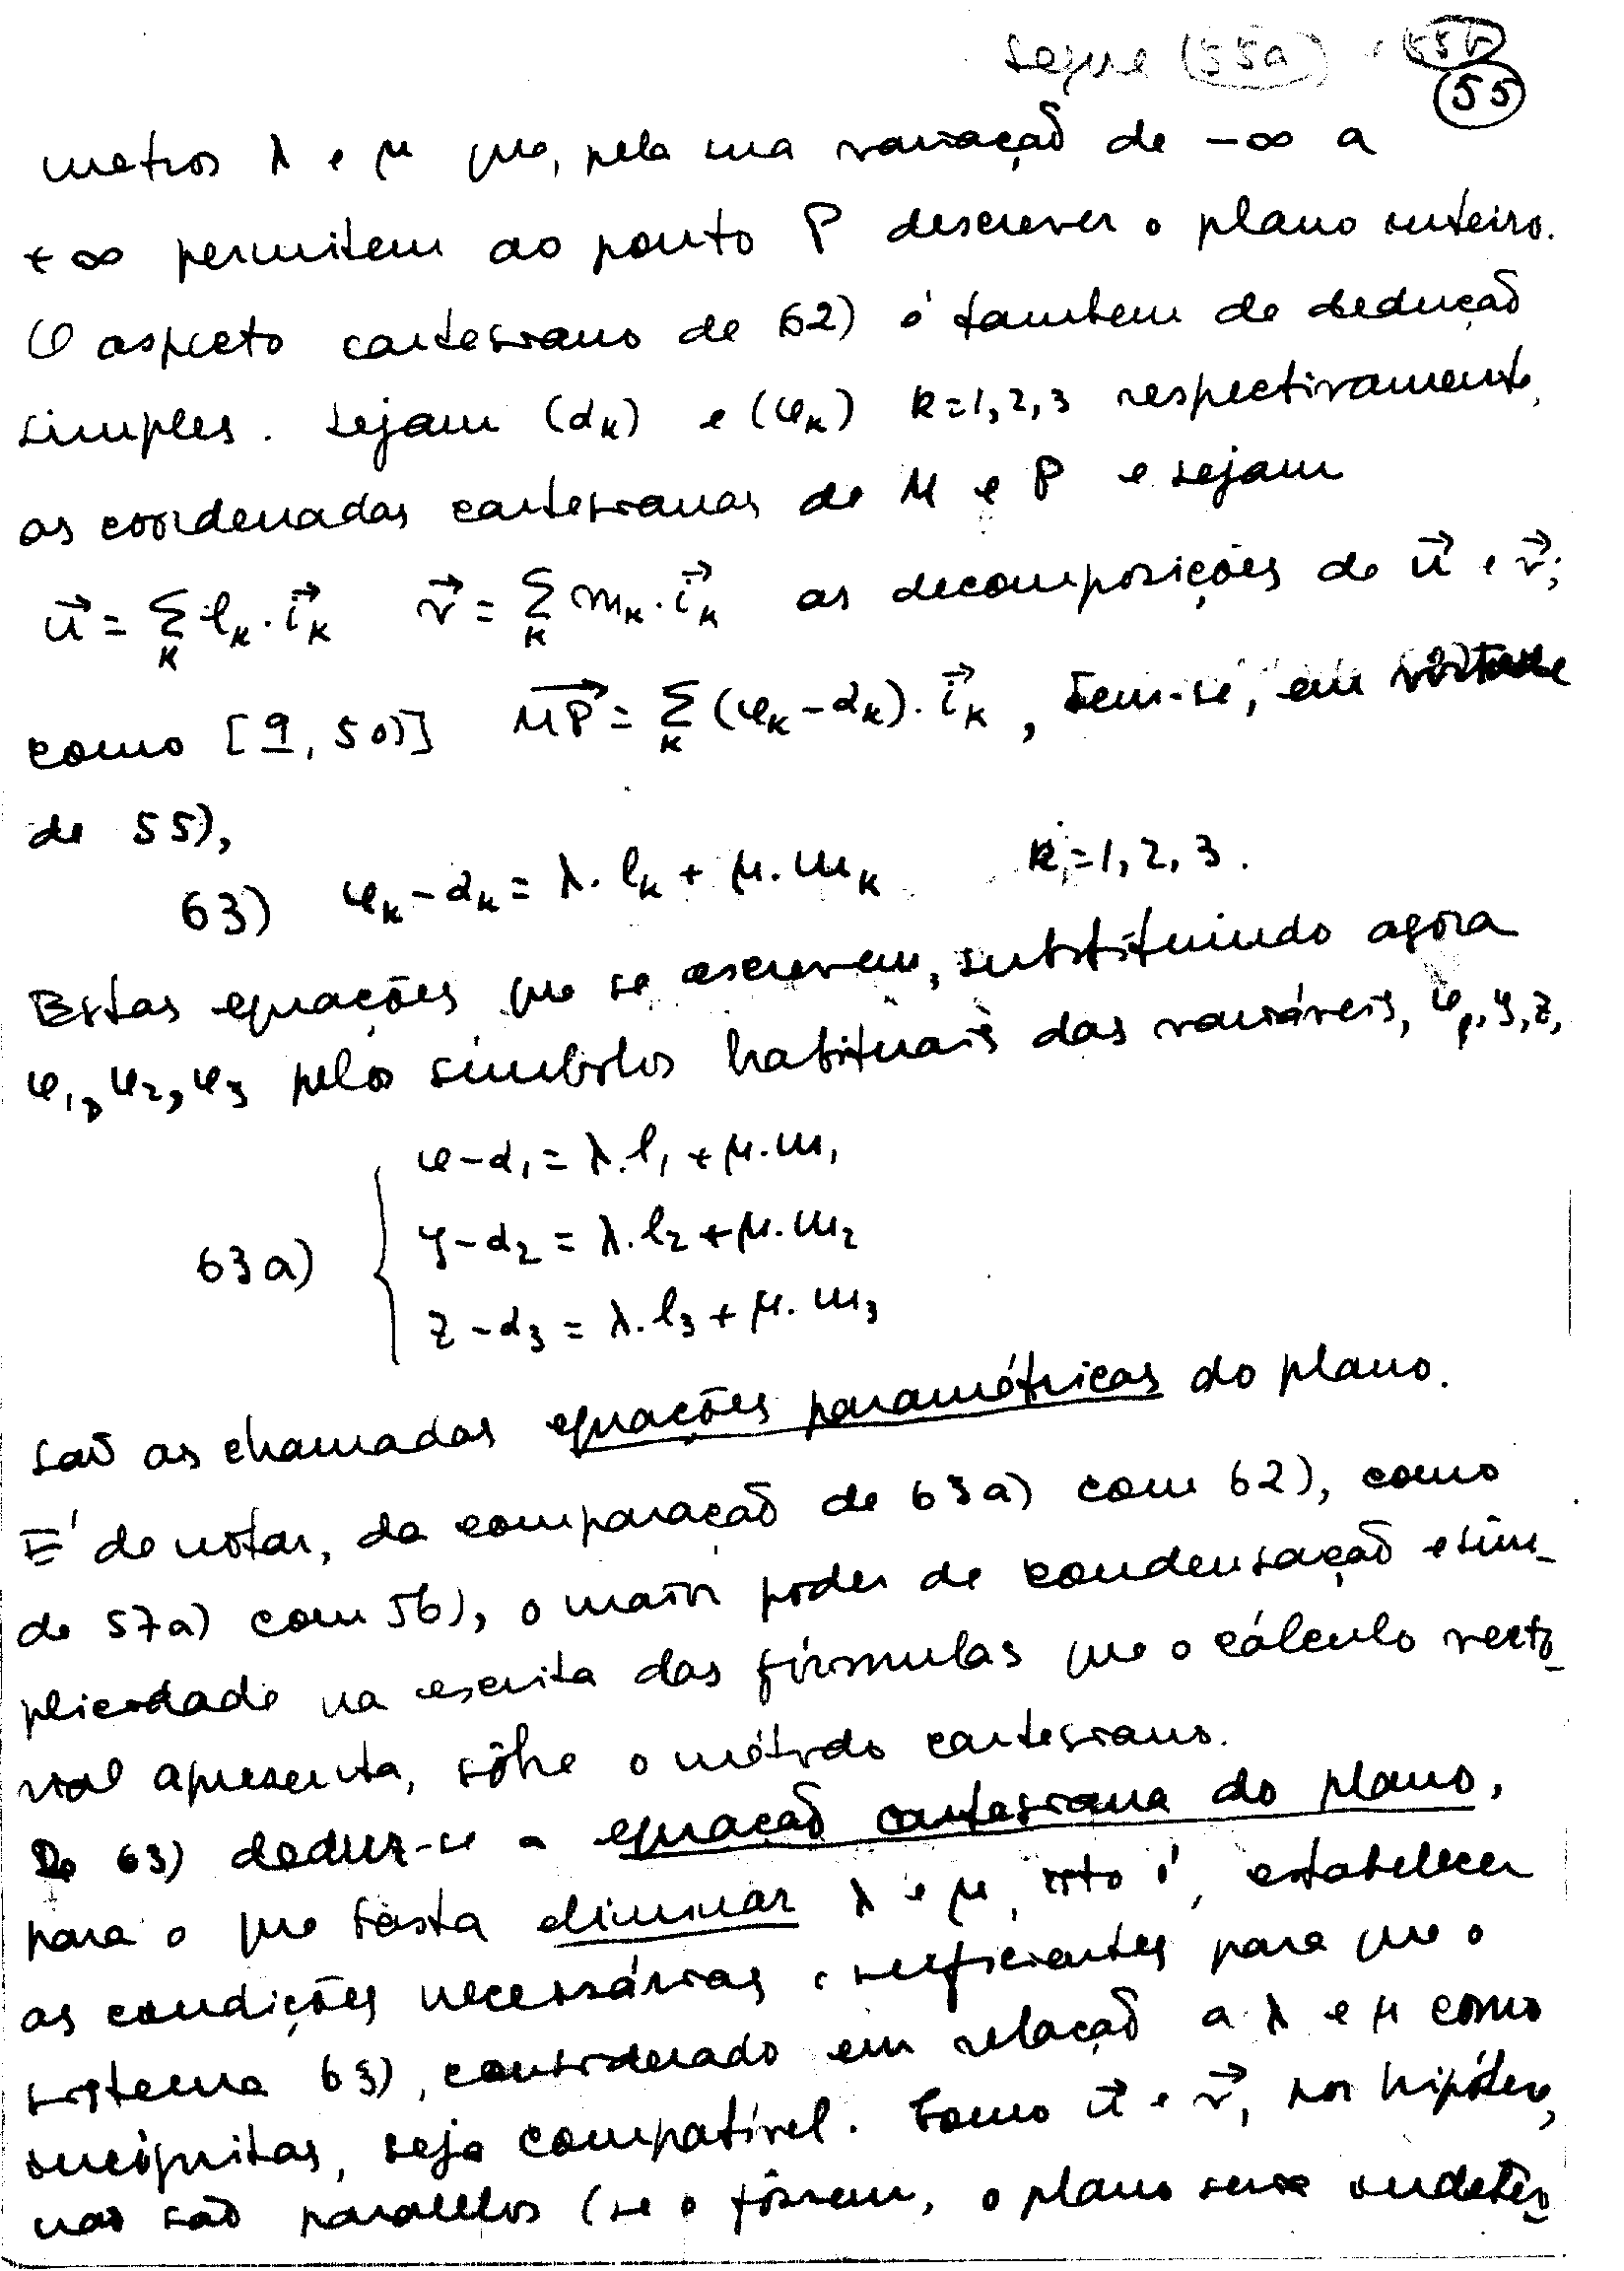 segue (55a) e 55b
55
metros λ e μ que, pela sua variação de -∞ a
+∞ permitem ao ponto P descrever o plano inteiro.
O aspecto cartesiano de 62) é tambem de dedução
simples. Sejam (α_k) e (x_k) k=1,2,3 respectivamente,
as coordenadas cartesianas de M e P e sejam
u⃗ = Σ_k l_k. i⃗_k v⃗ = Σ_k m_k. i⃗_k as decomposições de u⃗ e v⃗;
como [9, 50)] MP⃗ = Σ_k (x_k - α_k). i⃗_k, tem-se, em virtude
de 55),
63) x_k - α_k = λ. l_k + μ. m_k k=1,2,3.
Estas equações que se escrevem, substituindo agora
x_1, x_2, x_3 pelos símbolos habituais das variáveis, x, y, z,
63a) { x-α_1 = λ. l_1 + μ. m_1
y-α_2 = λ. l_2 + μ. m_2
z-α_3 = λ. l_3 + μ. m_3
são as chamadas equações paramétricas do plano.
É de notar, da comparação de 63a) com 62), como
de 57a) com 56), o maior poder de condensação e sim-
plicidade na escrita das fórmulas que o cálculo vecto-
rial apresenta, sôbre o método cartesiano.
De 63) deduz-se a equação cartesiana do plano,
para o que basta eliminar λ e μ, isto é, estabelecer
as condições necessárias e suficientes para que o
sistema 63), considerado em relação a λ e μ como
incógnitas, seja compatível. Como u⃗ e v⃗, por hipótese,
não são paralelos (se o fôssem, o plano seria indeter-